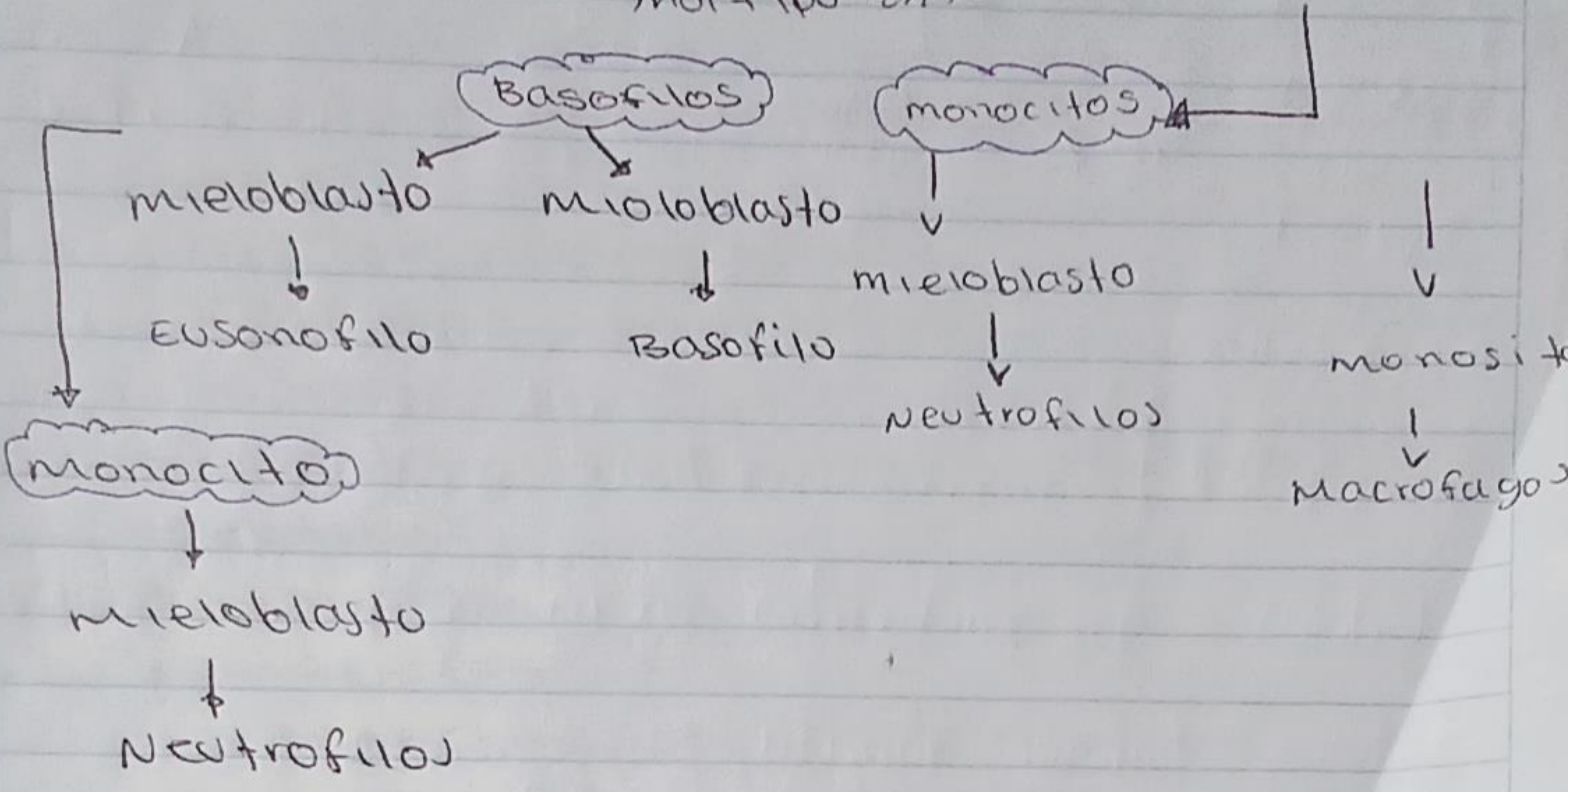 Basofilos
monocitos
mieloblasto
mioloblasto
mieloblasto
Eusonofilo
Basofilo
monosito
Neutrofilos
monocito
Macrofagos
mieloblasto
Neutrofilos